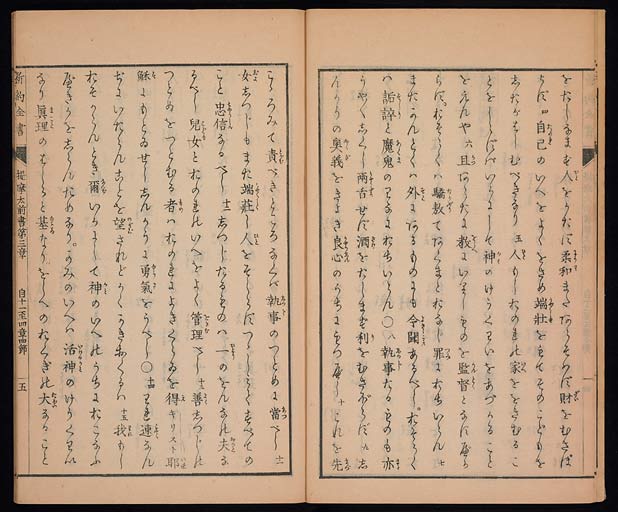 をたしなまず人をうたず柔和またあらそはず財をむさぼ
らず四自己のいへをよくをさめ端壮をもてそのこどもを
したがはしむべきなり五人もしおのれの家ををさむるこ
とをしらずバいかで神のけうくわいをあづかること
をえんや六且あらたに教にいりしものを監督となす
らず。おそらくハ驕敖てあくまとおなじ罪におちいらん七
またかんとくハ外にあるものにも令聞あるべし。おそらく
ハ詬誶と魔鬼のわなにおちいらん〇八執事たるものも亦
うやうやしくし両舌せず酒をたしまず利をむさぼらず九し
んかうの奥義をきよき良心のうちにもつべし十これを先
こころみて責べきところなくバ執事のつとめに當べし十一
女もまた端荘し人をそしらずつつしみてすべての
こと忠信なるべし十二しつじたるものハ一のをんなの夫な
るべし兒女とおのれのいへをよく管理べし十三善しつじの
つとめをつとむる者ハおのれによきくらゐを得キリスト耶
穌にもとゐせししんかうに勇氣をうべし〇十四われ速なん
ぢにいたらんことを望されどかくかきおくるハ十五我もし
おそからんとき爾いかにして神のいへのうちにおこなふ
べきかをしらんためなり。かみのいへハ活神のけうくわい
なり眞理のはしらと基なり おくぎハ大なること
新約全書 提摩太前書第三章 自十一至四章四節 五